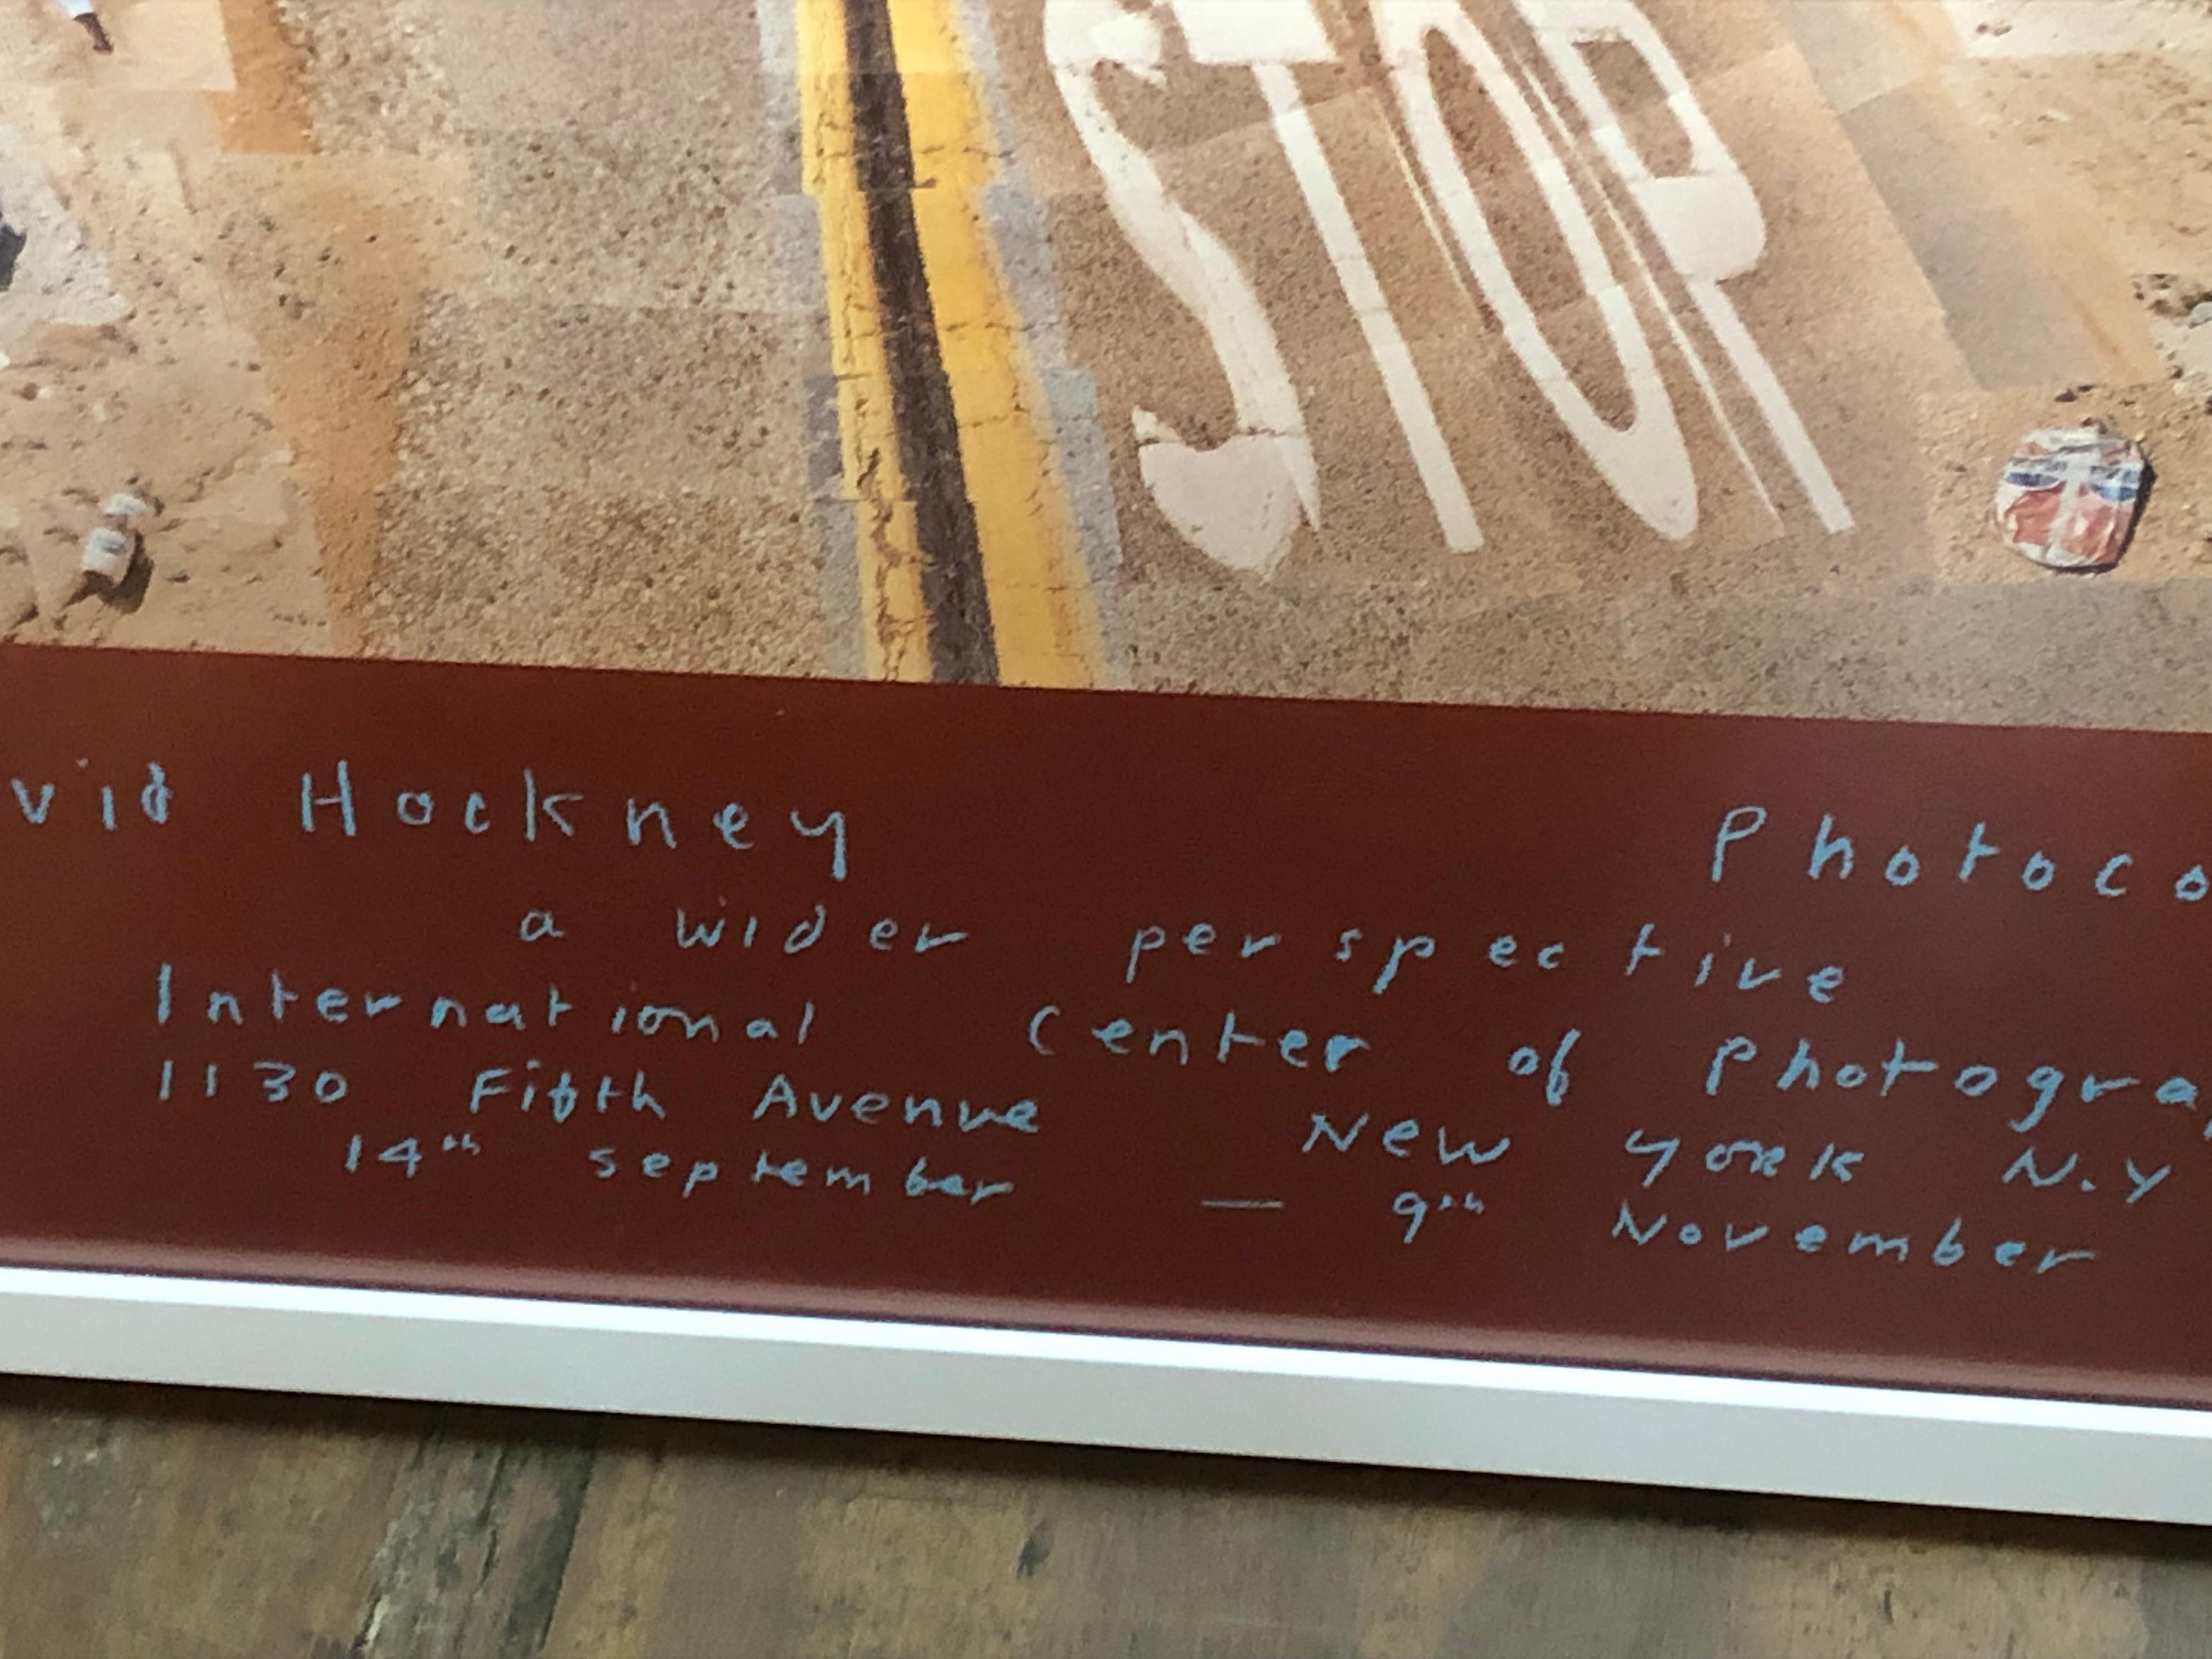 STOP
vid Hockney Photoco
a wider perspective
International Center of Photogra
1130 Fifth Avenue New York N.Y
14th september — 9th November